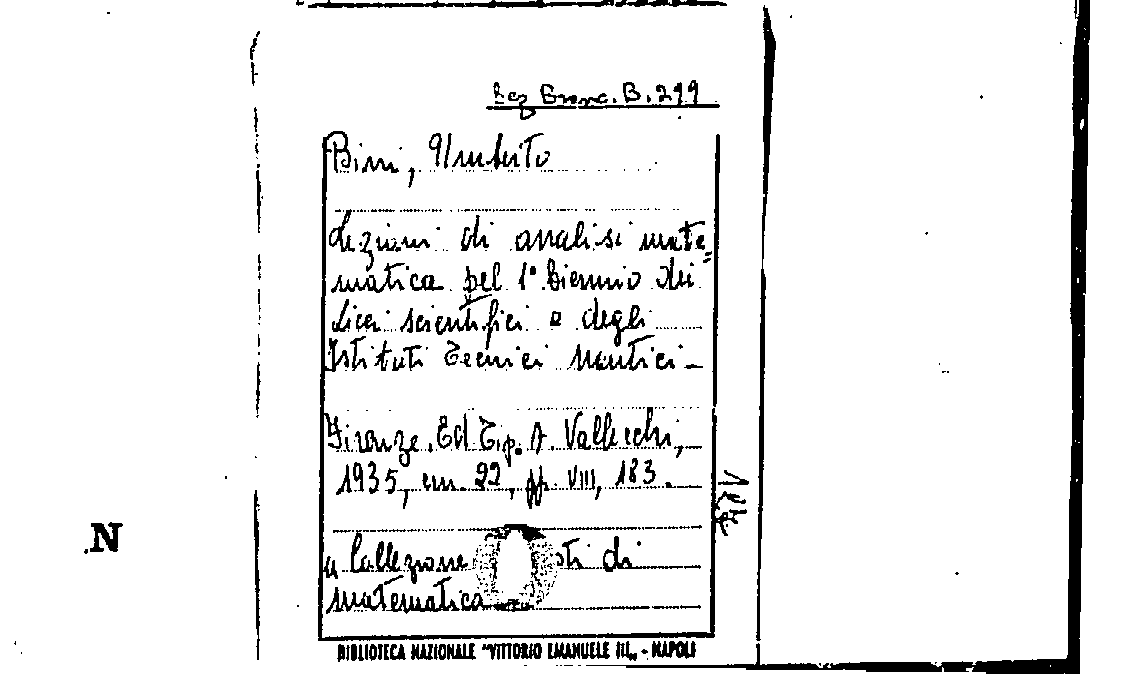 Racc. B. 299
Bini, Umberto
Lezioni di analisi mate=
matica pel 1° biennio dei
Licei scientifici e degli
Istituti Tecnici Nautici -
Firenze. Ed Tip. A. Vallecchi,
1935, cm. 22, pp. VIII, 183.
a Collezione sti di
matematica
N
BIBLIOTECA NAZIONALE "VITTORIO EMANUELE III„ - NAPOLI